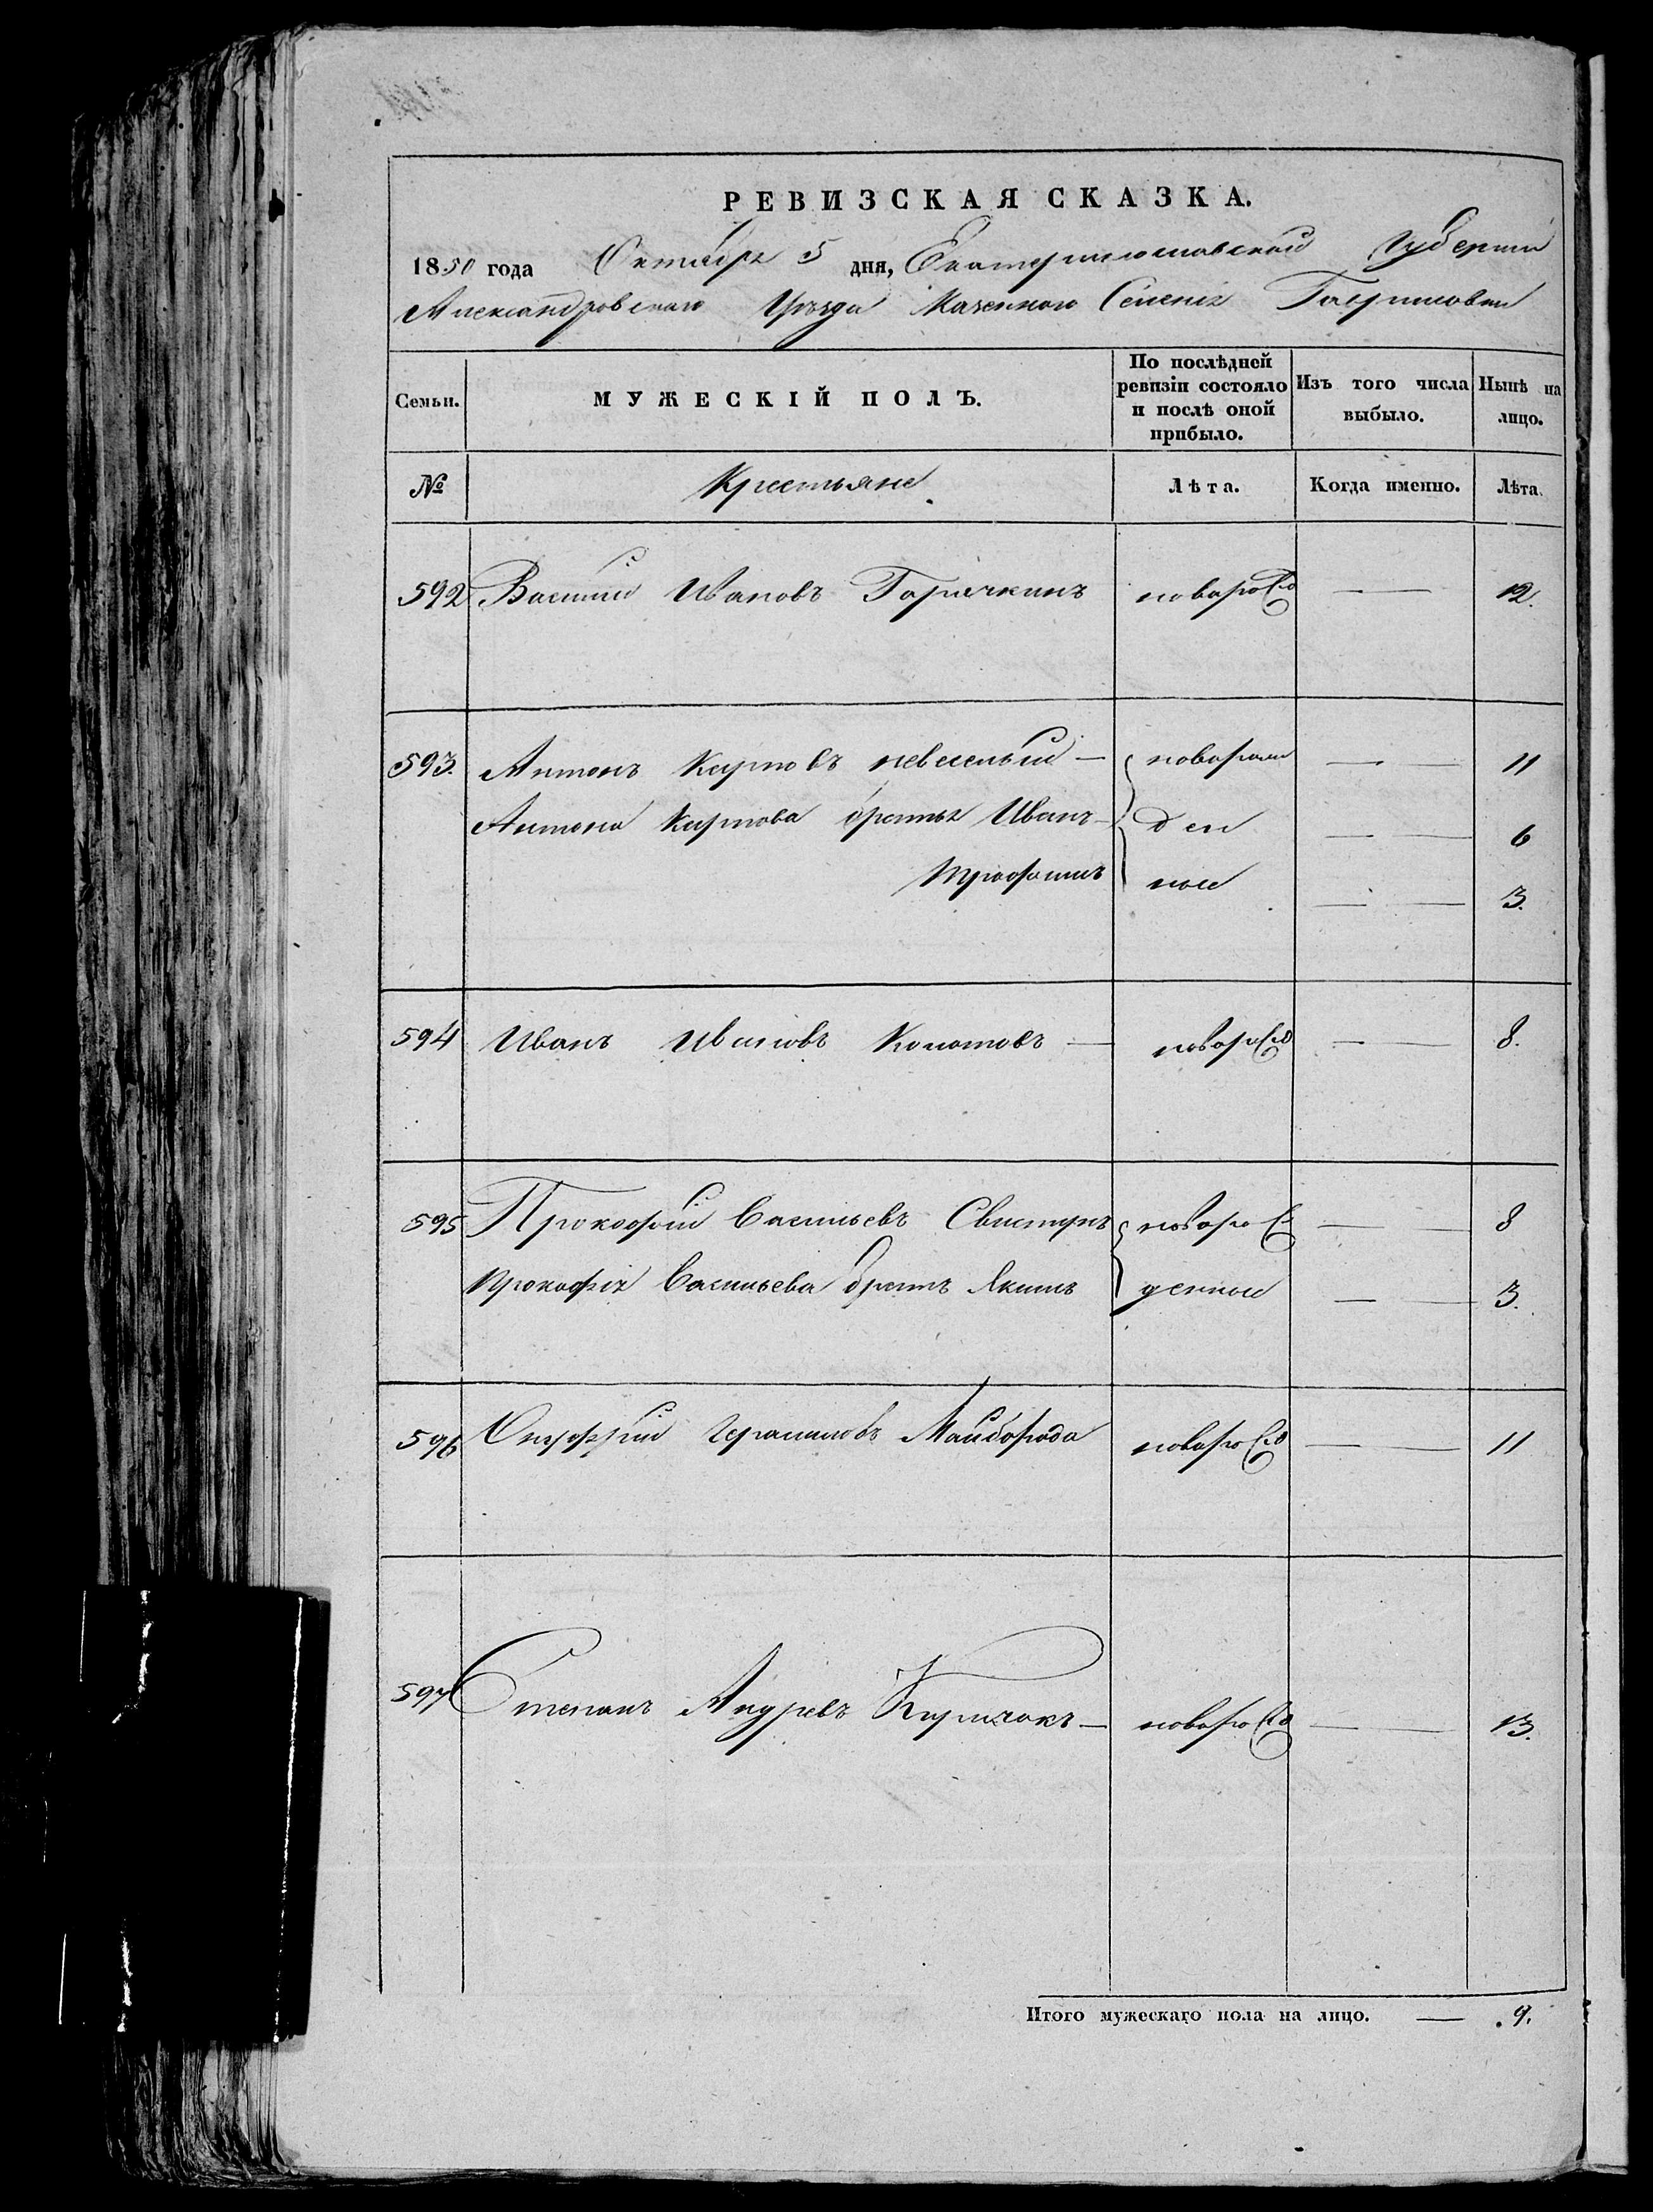 РЕВИЗСКАЯ СКАЗКА.
1850 года Октября 5 дня, Екатеринославской Губерніи
Александровскаго Уѣзда Казеннаго Селенія Гавриловки
Семьи.
МУЖЕСКІЙ ПОЛЪ.
По послѣдней ревизіи состояло и послѣ оной прибыло.
Изъ того числа выбыло.
Нынѣ на лицо.
№ Крестьяне Лѣта. Когда именно. Лѣта.
592 Василий Ивановъ Горячкинъ новорожд — 12.
593. Антонъ Карповъ невеселый — новорож — 11
Антона Карпова братья Иванъ — ден — 6
Трофимъ ные — 3.
594 Иванъ Ивановъ Колотовъ — новорожд — 8.
595 Прокофий Васильевъ Свистунъ новорож — 8
Прокофія Васильева братъ Якимъ денные — 3.
596 Онуфрий Герасимовъ Майборода новорожд — 11
597 Степанъ Андреевъ — новорожд — 13.
Итого мужескаго пола на лицо. — 9.